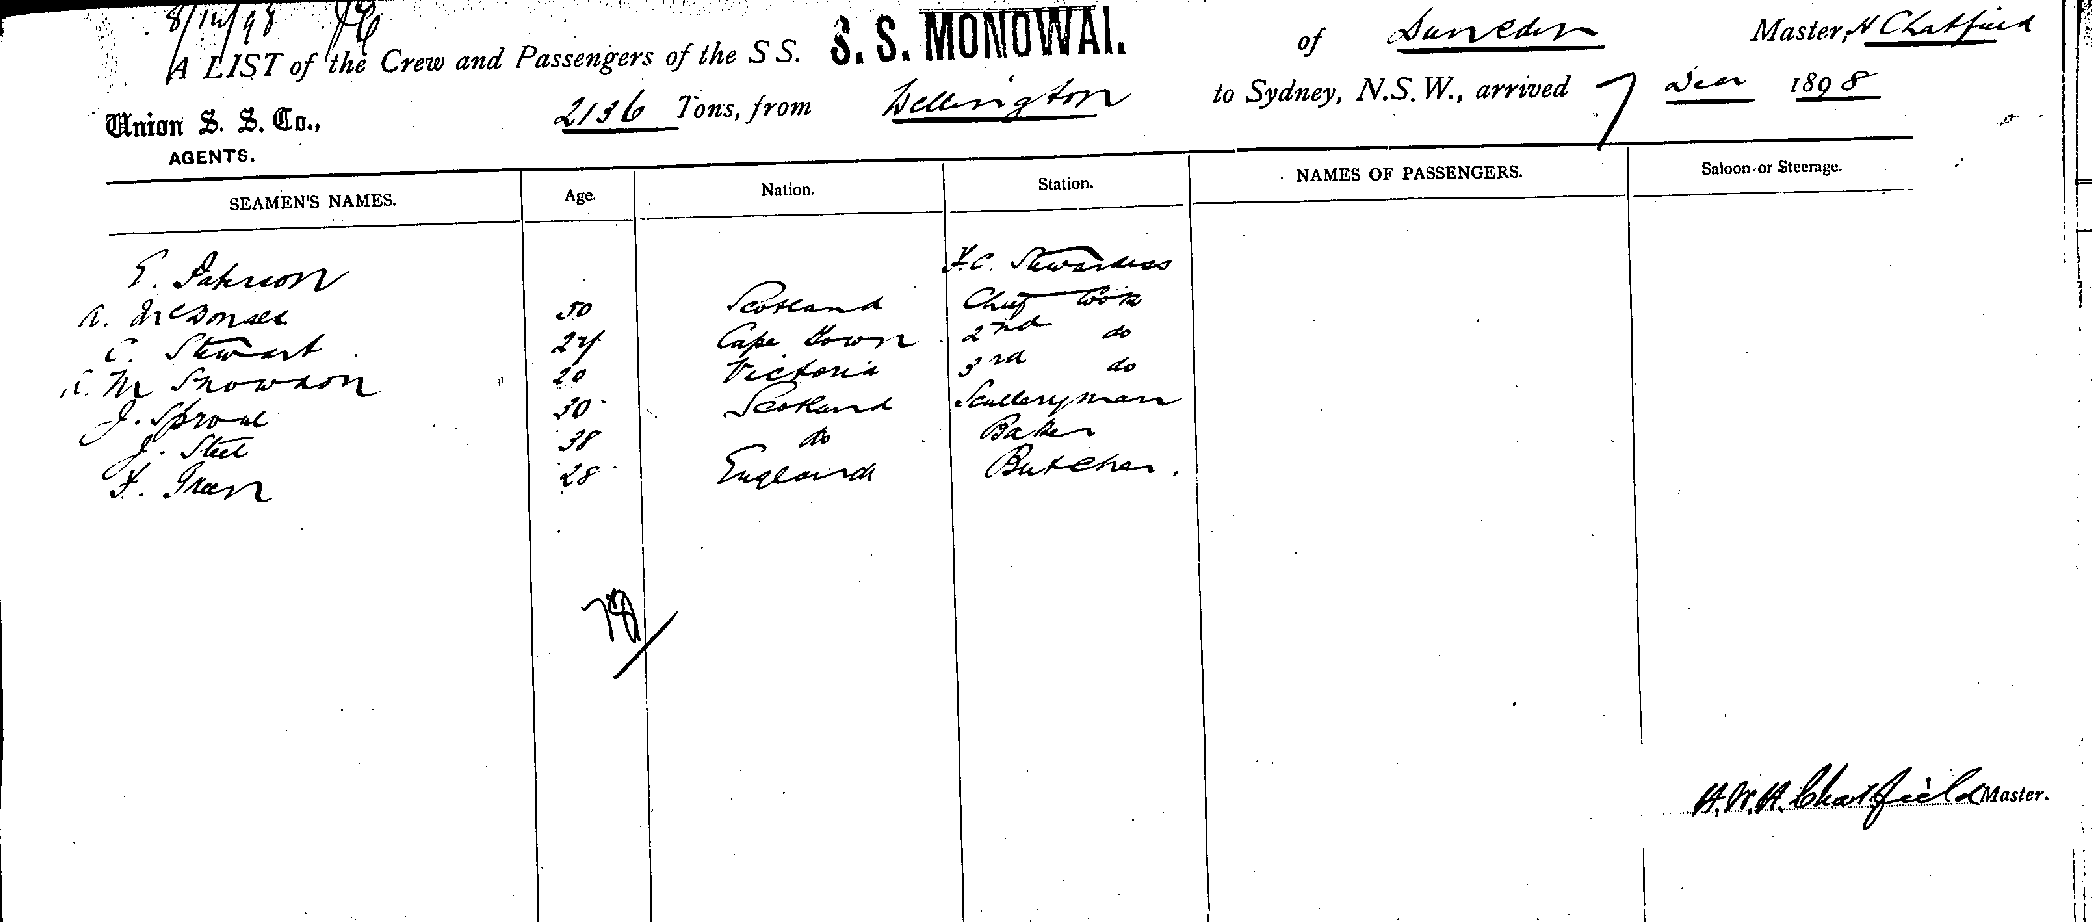 8/12/98
A LIST of the Crew and Passengers of the S S. S. S. MONOWAI. of Dunedin Master, H Chatfield
Union S. S. Co., 2136 Tons, from Wellington to Sydney, N.S.W., arrived 7 Decr 1898
AGENTS.
SEAMEN'S NAMES. Age. Nation. Station. NAMES OF PASSENGERS. Saloon or Steerage.
E. Paterson F.C. Stewardess
A. McDonald 50 Scotland Chief Cook
C. Stewart 24 Cape Town 2nd do
M Snowdon 20 Victoria 3rd do
J. Sproul 30 Scotland Sculleryman
J. Steel 38 do Baker
F. Green 28 England Butcher.
78/
H. W. H. Chatfield Master.